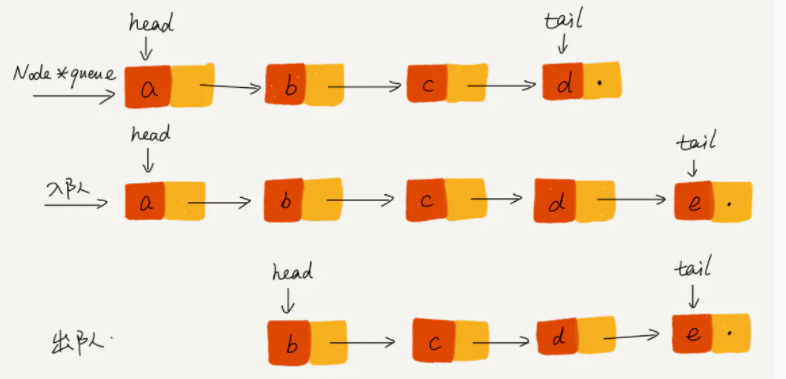 head tail
Node *queue a b c d .
head tail
入队 a b c d e .
head tail
出队. b c d e .